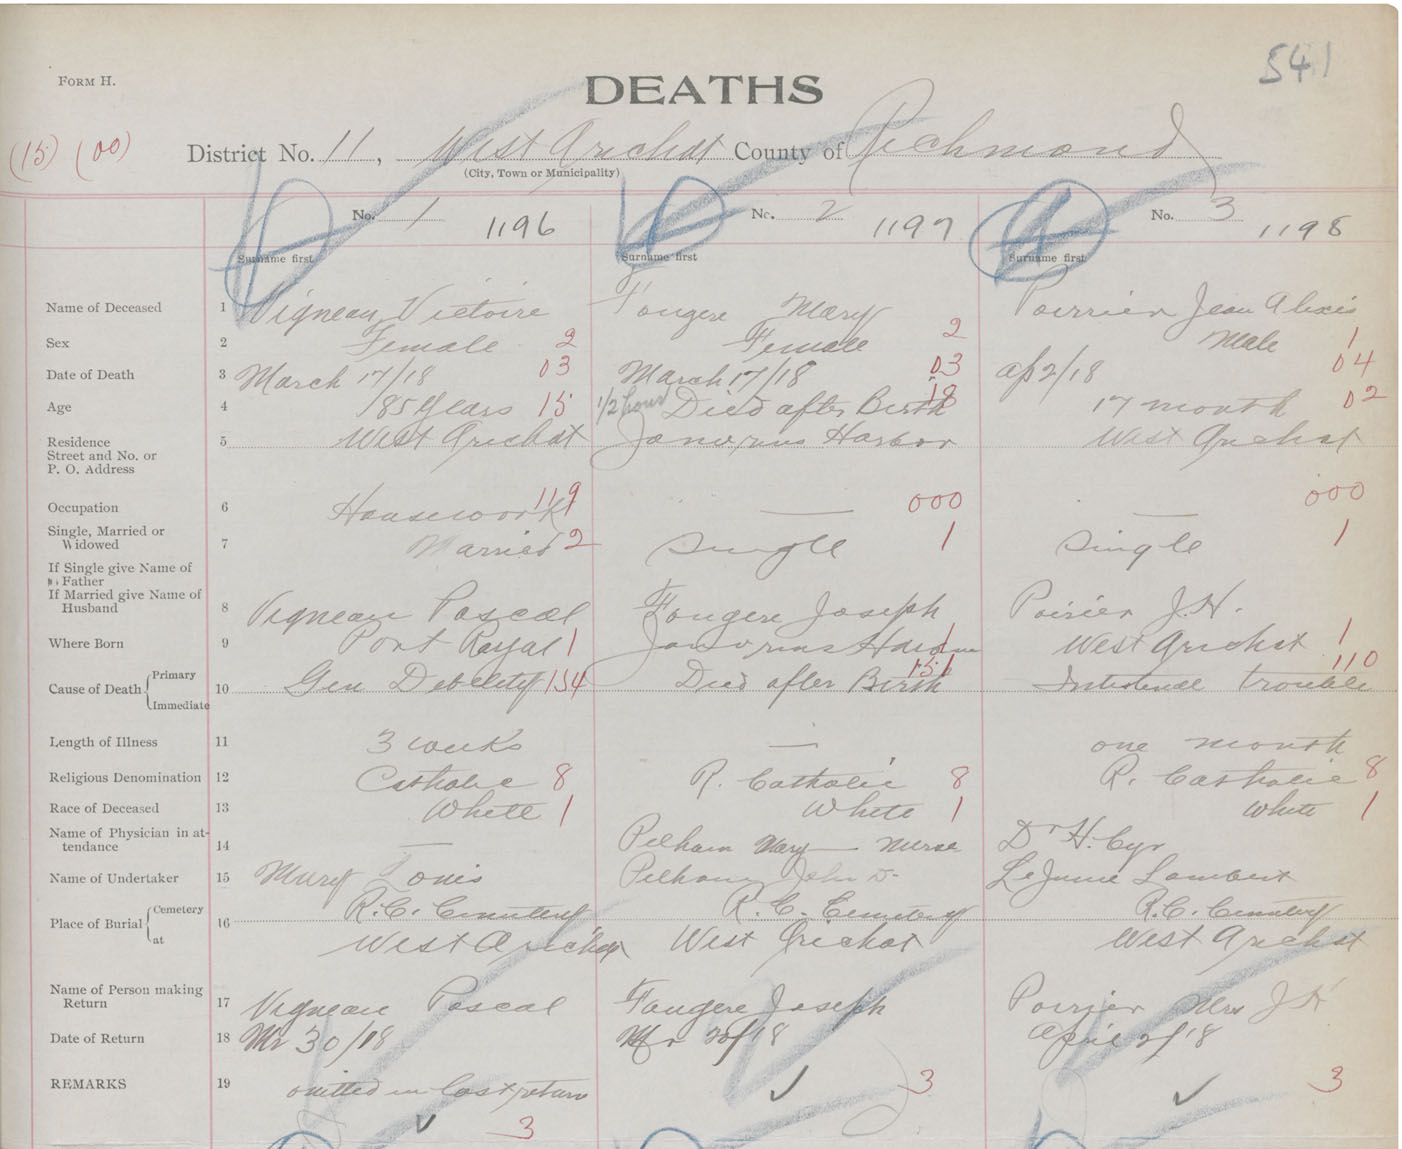 541
FORM H.
DEATHS
(15) (00) District No. 11, West Arichat County of Richmond
(City, Town or Municipality)
No. 1 1196 No. 2 1197 No. 3 1198
Surname first Surname first Surname first
Name of Deceased 1 Vigneau Victoire Fougere Mary Poirrier Jean Alexis
Sex 2 Female 2 Female 2 Male 1
Date of Death 3 March 17/18 03 March 17/18 03 ap 2/18 04
Age 4 85 years 15 1/2 hour Died after Birth 18 17 month 02
Residence 5 West Arichat Janvrins Harbor West Arichat
Street and No. or
P. O. Address
Occupation 6 Housework 119 — 000 — 000
Single, Married or
Widowed 7 Married 2 single 1 single 1
If Single give Name of
Father
If Married give Name of
Husband 8 Vigneau Pascal Fougere Joseph Poirier J.H.
Where Born 9 Port Royal 1 Janvrins Harbor 1 West Arichat 1
Cause of Death { Primary 10 Gen Debelity 154 Died after Birth 151 Intestenal trouble 110
Immediate
Length of Illness 11 3 weeks — one month
Religious Denomination 12 Catholic 8 R. Catholic 8 R. Catholic 8
Race of Deceased 13 White 1 White 1 White 1
Name of Physician in at-
tendance 14 — Pelham Mary Nurse Dr H. Cyr
Name of Undertaker 15 Mury Louis Pelham John D. LeJune Lambert
Place of Burial { Cemetery 16 R.C. Cemetery R.C. Cemetery R.C. Cemetery
at West Arichat West Arichat West Arichat
Name of Person making
Return 17 Vigneau Pascal Fougere Joseph Poirrier Mrs J H
Date of Return 18 Mr 30/18 Mr 20/18 April 2/18
REMARKS 19 omitted in last return ✓ 3 ✓ 3
✓ 3